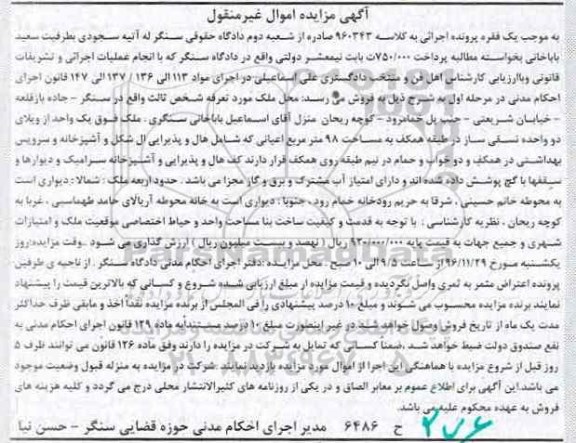 آگهی مزایده اموال غیرمنقول
به موجب یک فقره پرونده اجرائی به کلاسه ۹۶۰۳۴۳ صادره از شعبه دوم دادگاه حقوقی سنگر له آتیه سجودی بطرفیت سعید
باباخانی بخواسته مطالبه پرداخت ۷۵۰/۰۰۰ت بابت نیمعشر دولتی واقع در دادگاه سنگر که با انجام عملیات اجرائی و تشریفات
قانونی وباارزیابی کارشناس اهل فن و منتخب دادگستری علی اسماعیلی در اجرای مواد ۱۱۳ الی ۱۳۶ / ۱۳۷ الی ۱۴۷ قانون اجرای
احکام مدنی در مرحله اول به شرح ذیل به فروش می رسد: محل ملک مورد تعرفه شخص ثالث واقع در سنگر - جاده بازقلعه
- خیابان شریعتی - جنب پل خمامرود - کوچه ریحان منزل آقای اسماعیل باباخانی سنگری . ملک فوق یک واحد از ویلای
دو واحده نسقی ساز در طبقه همکف به مساحت ۹۸ متر مربع اعیانی که شامل هال و پذیرایی ال شکل و آشپزخانه و سرویس
بهداشتی در همکف و دو خواب و حمام در نیم طبقه روی همکف قرار دارند کف هال و پذیرایی و آشپزخانه سرامیک و دیوارها و
سقفها با گچ پوشش داده شده اند و دارای امتیاز آب مشترک و برق و گاز مجزا می باشد . حدود اربعه ملک : شمالا : دیواری است
به محوطه خانم حسینی ، شرقا به حریم رودخانه خمام رود ، جنوبا : دیواری است به خانه محوطه آریالای حامد طهماسبی ، غربا به
کوچه ریحان ، نظریه کارشناسی : با توجه به قدمت و کیفیت ساخت بنا مساحت واحد و حیاط اختصاصی موقعیت ملک و امتیازات
شهری و جمیع جهات به قیمت پایه ۹۲۰/۰۰۰/۰۰۰ ریال ( نهصد و بیست میلیون ریال ) ارزش گذاری می شود ..وقت مزایده:روز
یکشنبه مورخ ۹۶/۱۱/۲۹ از ساعت ۹/۵ الی ۱۰ صبح . محل مزایده :دفتر اجرای احکام مدنی دادگاه سنگر . از ناحیه ی طرفین
پرونده اعتراض مثمر به ثمری واصل نگردیده و قیمت مزایده از مبلغ ارزیابی شده شروع و کسانی که بالاترین قیمت را پیشنهاد
نمایند برنده مزایده محسوب می شوند و مبلغ ۱۰ درصد پیشنهادی رافی المجلس از برنده مزایده نقدا اخذ و مابقی ظرف حداکثر
مدت یک ماه از تاریخ فروش وصول خواهد شد در غیر اینصورت مبلغ ۱۰ درصد مستندابه ماده ۱۲۹ قانون اجرای احکام مدنی به
نفع صندوق دولت ضبط خواهد شد .ضمناً کسانی که تمایل به شرکت در مزایده را دارند وفق ماده ۱۲۶ قانون می توانند ظرف ۵
روز قبل از شروع مزایده با هماهنگی این اجرا از اموال مورد مزایده بازدید نمایند .شرکت در مزایده به منزله قبول وضعیت موجود
می باشد.این آگهی برای اطلاع عموم بر معابر الصاق و در یکی از روزنامه های کثیرالانتشار محلی درج می گردد و کلیه هزینه های
فروش به عهده محکوم علیه می باشد.
ح ۶۴۸۶ مدیر اجرای احکام مدنی حوزه قضایی سنگر - حسن نیا